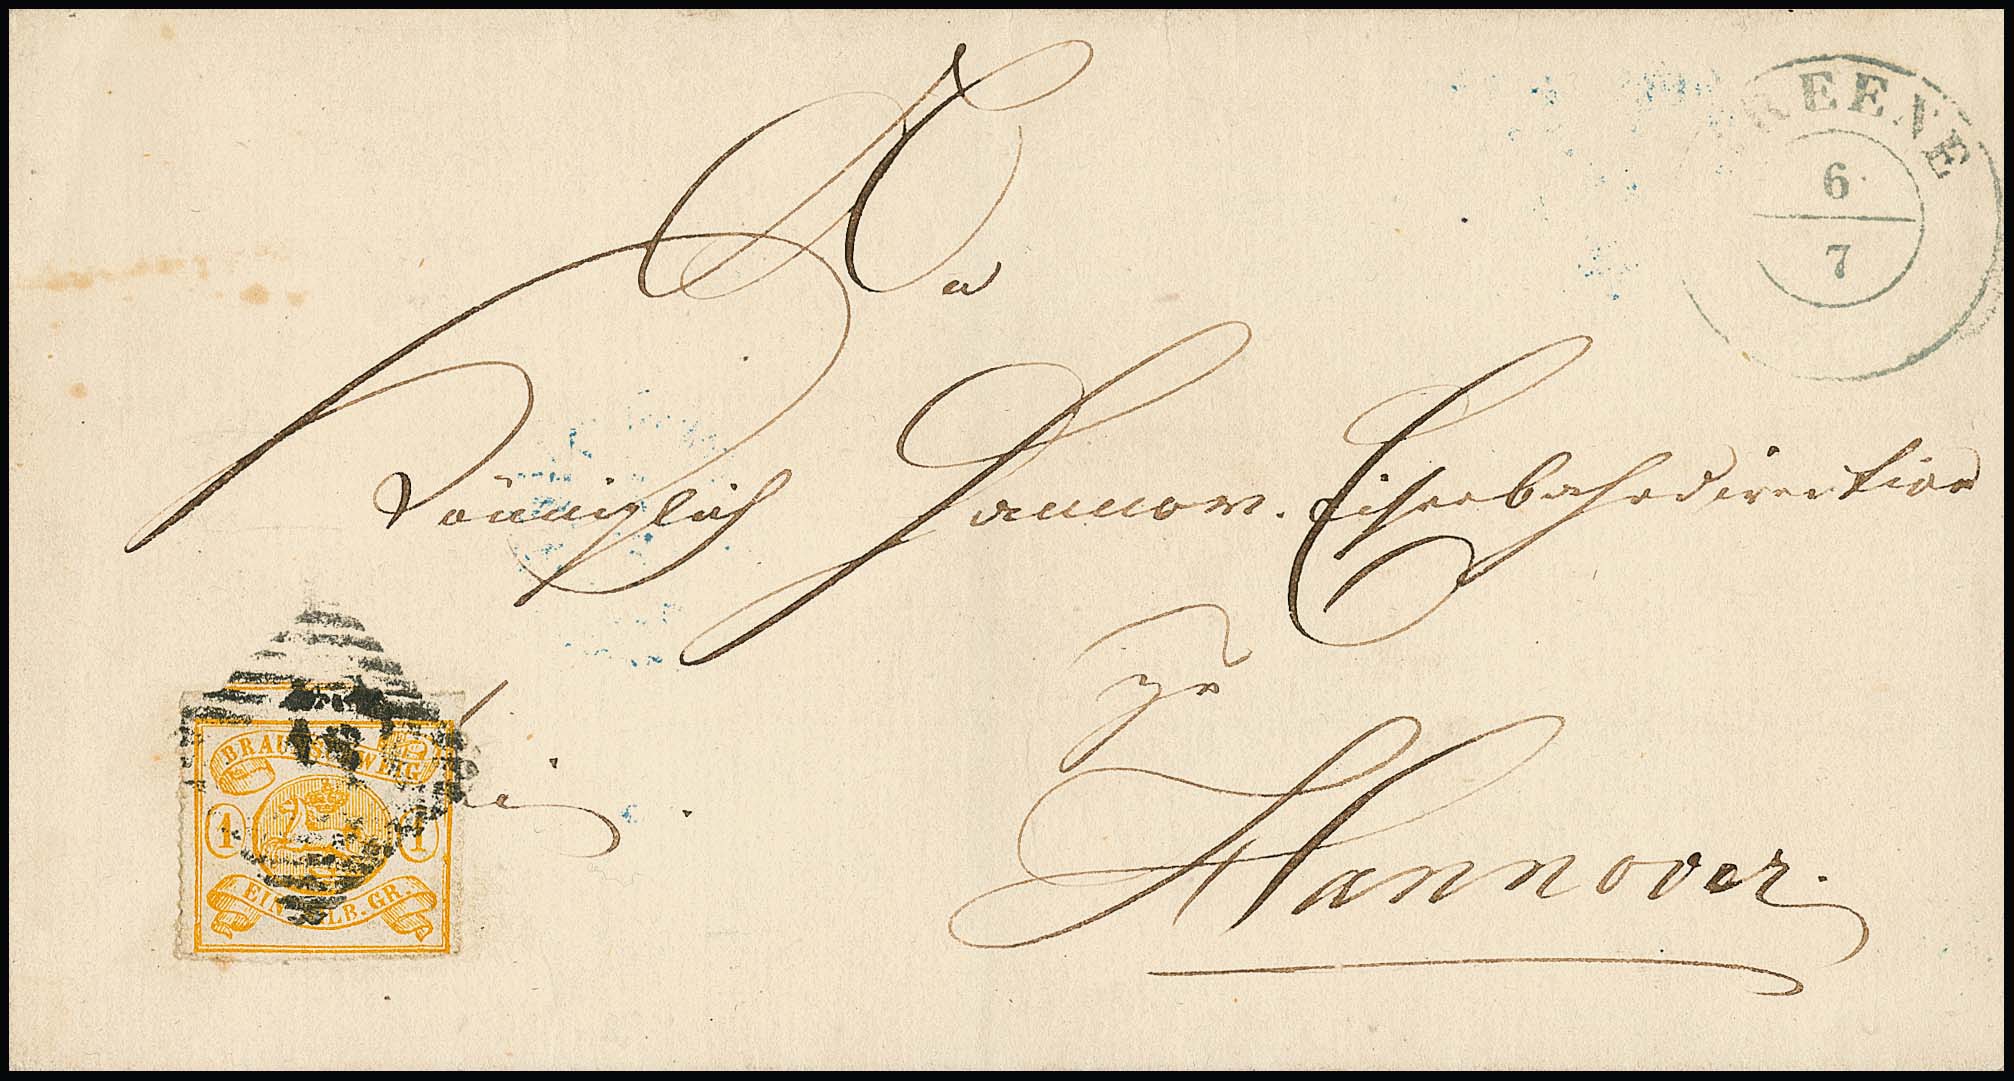 REENE
6
7
An
Königlich Hannov. Eisenbahndirection
zu
Hannover.
BRAUNSCHWEIG
1 1
EIN SILB. GR.